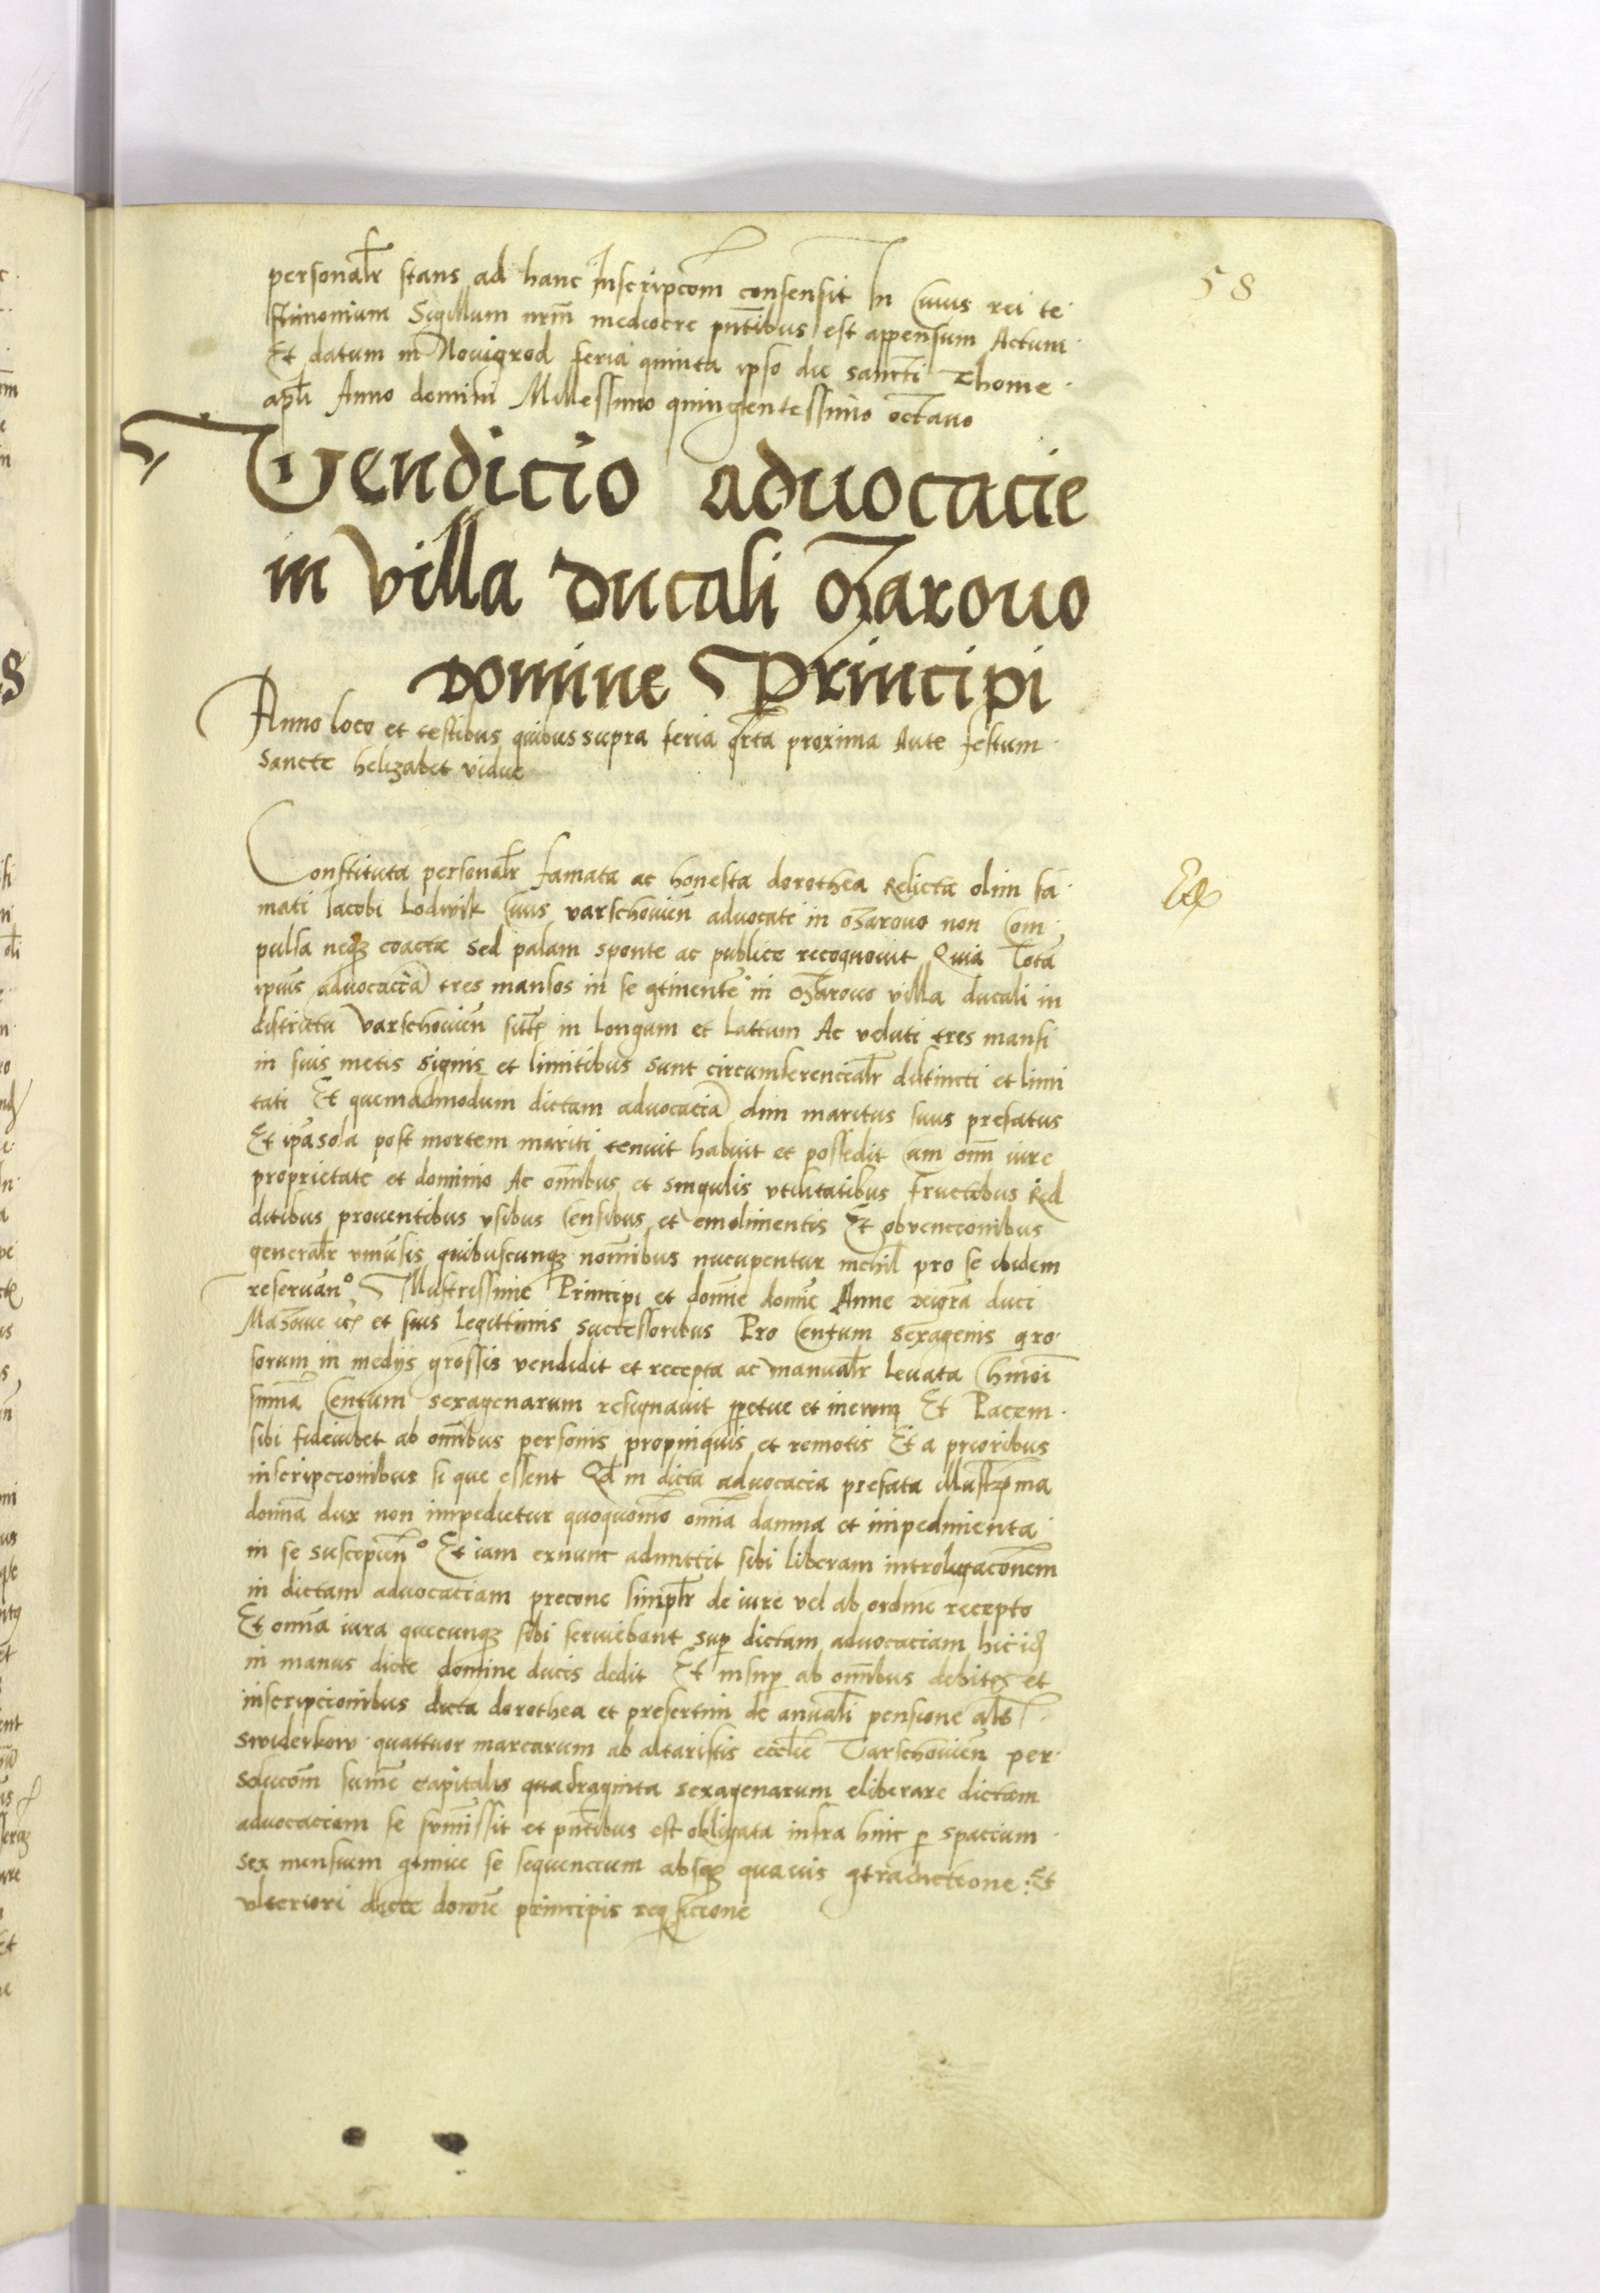 58
personalr stans ad hanc Inscripcom consensit In Cuius rei te
stimonium Sigillum nrm mediocre pntibus est appensum Actum
Et datum in Nouigrod feria quinta ipso die sancti Thome
apli Anno domini Millessimo quingentessimo octauo
Vendicio aduocacie
in villa ducali ozarouo
domine Principi
Anno loco et testibus quibus supra feria qrta proxima Ante festum
Sancte helizabet vidue
Constituta personalr famata ac honesta dorothea Relicta olim fa
mati Iacobi Lodwik Ciuis varschouien aduocati in ozarouo non Com
pulsa neqz coacta Sed palam sponte ac publice recognouit Quia Tota
ipius aduocacia tres mansos in se gtinente in Ozarouo villa ducali in
districtu varschouien in longum et Latum Ac veluti tres mansi
in suis metis signis et limitibus sunt circumferencialr distincti et limi
tati Et quemadmodum dictam aduocacia olim maritus suus prefatus
Et ipa sola post mortem mariti tenuit habuit et possedit Cum omi iure
proprietate et dominio Ac omibus et singulis vtilitatibus fructibus Red
ditibus prouentibus vsibus Censibus et emolimentis Et obvencionibus
generalr vniusis quibuscunqz nomibus nucupentur nichil pro se ibidem
reseruan° Illustrissime Principi et domie domie Anne deigra duci
Mazouie et suis Legittimis successoribus Pro Centum sexagenis gro
sorum in medijs grossis vendidit et recepta ac manualr Leuata hmoi
suma Centum sexagenarum resignauit ppetue et in Et Pacem
sibi fideiubet ab omibus personis propinquis et remotis Et a prioribus
inscripcionibus si que essent Qd in dicta aduocacia prefata illustma
domia dux non impedietur quoquomo omia damna et impedimenta
in se suscepien° Et iam exnunc admittit sibi liberam introligaconem
in dictam aduocaciam precone simplr de iure vel ab ordine recepto
Et omia iura quecunqz sibi seruiebant sup dictam aduocaciam hic
in manus dicte domine ducis dedit Et insup ab omibus debitis et
inscripcionibus dicta dorothea et presertim de anuali pensione als
swiderkow quattuor marcarum ab altaristis ecclie Varschouien per
solucom sume capitalis quadraginta sexagenarum eliberare dictam
aduocaciam se summissit et pntibus est obligata infra hinc p spacium
sex mensium gtinue se sequencium absqz quauis gtradictione Et
vlteriori dicte domie principis reqsicione